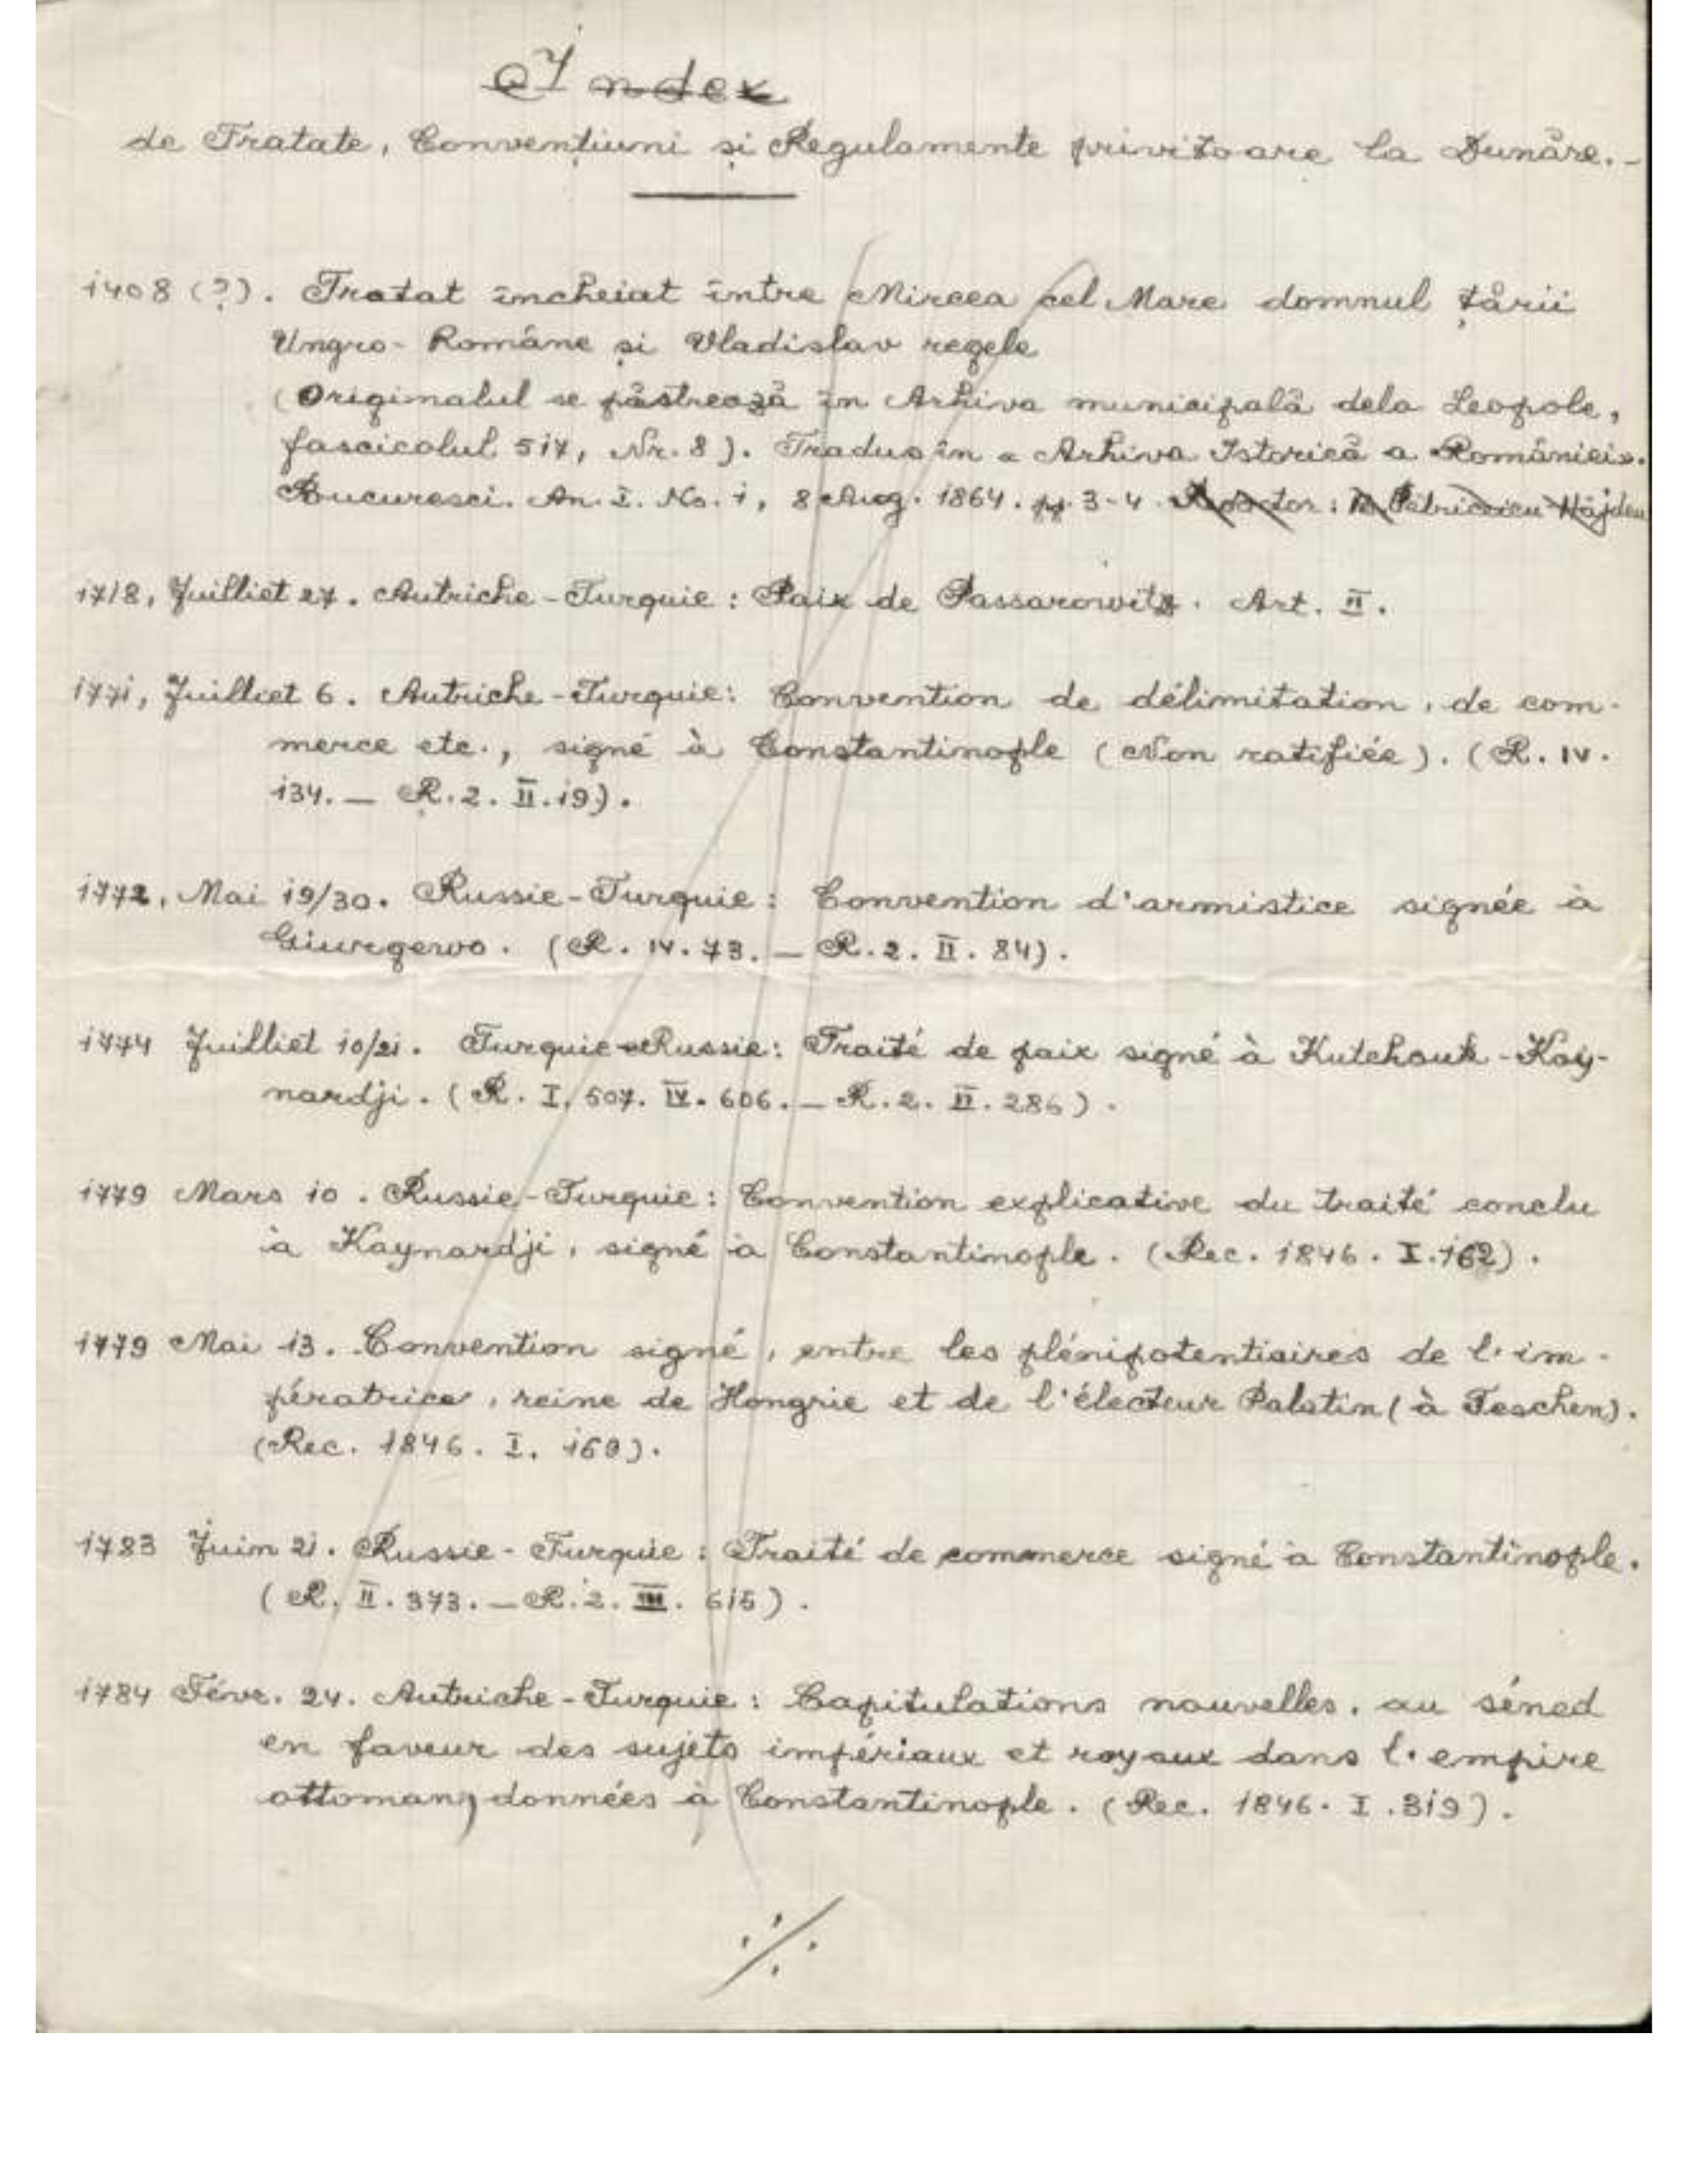 Index
de Tratate, Convențiuni și Regulamente privitoare la Dunăre.-
1408 (?). Tratat încheiat între Mircea cel Mare domnul țării
Ungro-Române și Vladislav regele
(Originalul se păstrează în Arhiva municipală dela Leopole,
fascicolul 517, Nr. 8). Tradus în « Arhiva Istorică a României».
Bucuresci. An. I. No. 1, 8 Aug. 1864. pp. 3-4. Redactor: B. Petriceicu Hăjdeu
1718, Juilliet 27. Autriche-Turquie: Paix de Passarowitz. Art. II.
1771, Juilliet 6. Autriche-Turquie: Convention de délimitation, de com-
merce etc., signé à Constantinople (Non ratifiée). (R. IV.
134. — R. 2. II. 19).
1772, Mai 19/30. Russie-Turquie: Convention d'armistice signée à
Giurgewo. (R. IV. 73. — R. 2. II. 84).
1774 Juilliet 10/21. Turquie-Russie: Traité de paix signé à Kutchouk-Kay-
nardji. (R. I. 507. IV. 606. — R. 2. II. 286).
1779 Mars 10. Russie-Turquie: Convention explicative du traité conclu
à Kaynardji, signé à Constantinople. (Rec. 1846. I. 162).
1779 Mai 13. Convention signé, entre les plénipotentiaires de l'im-
pératrice, reine de Hongrie et de l'électeur Palatin (à Teschen).
(Rec. 1846. I. 169).
1783 Juin 21. Russie-Turquie: Traité de commerce signé à Constantinople.
(R. II. 373. — R. 2. III. 615).
1784 Févr. 24. Autriche-Turquie: Capitulations nouvelles, au séned
en faveur des sujets impériaux et royaux dans l'empire
ottoman, données à Constantinople. (Rec. 1846. I. 319).